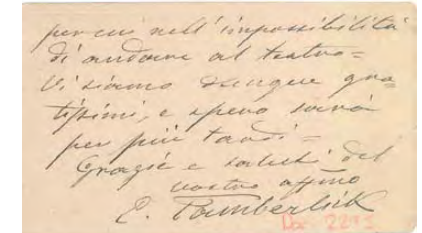 per cui nell'impossibilità
di andare al teatro=
Vi siamo dunque gra=
tissimi, e spero sarà
per più tardi=
Grazie e saluti del
vostro affmo
E. Tamberlick
Doc. 2291